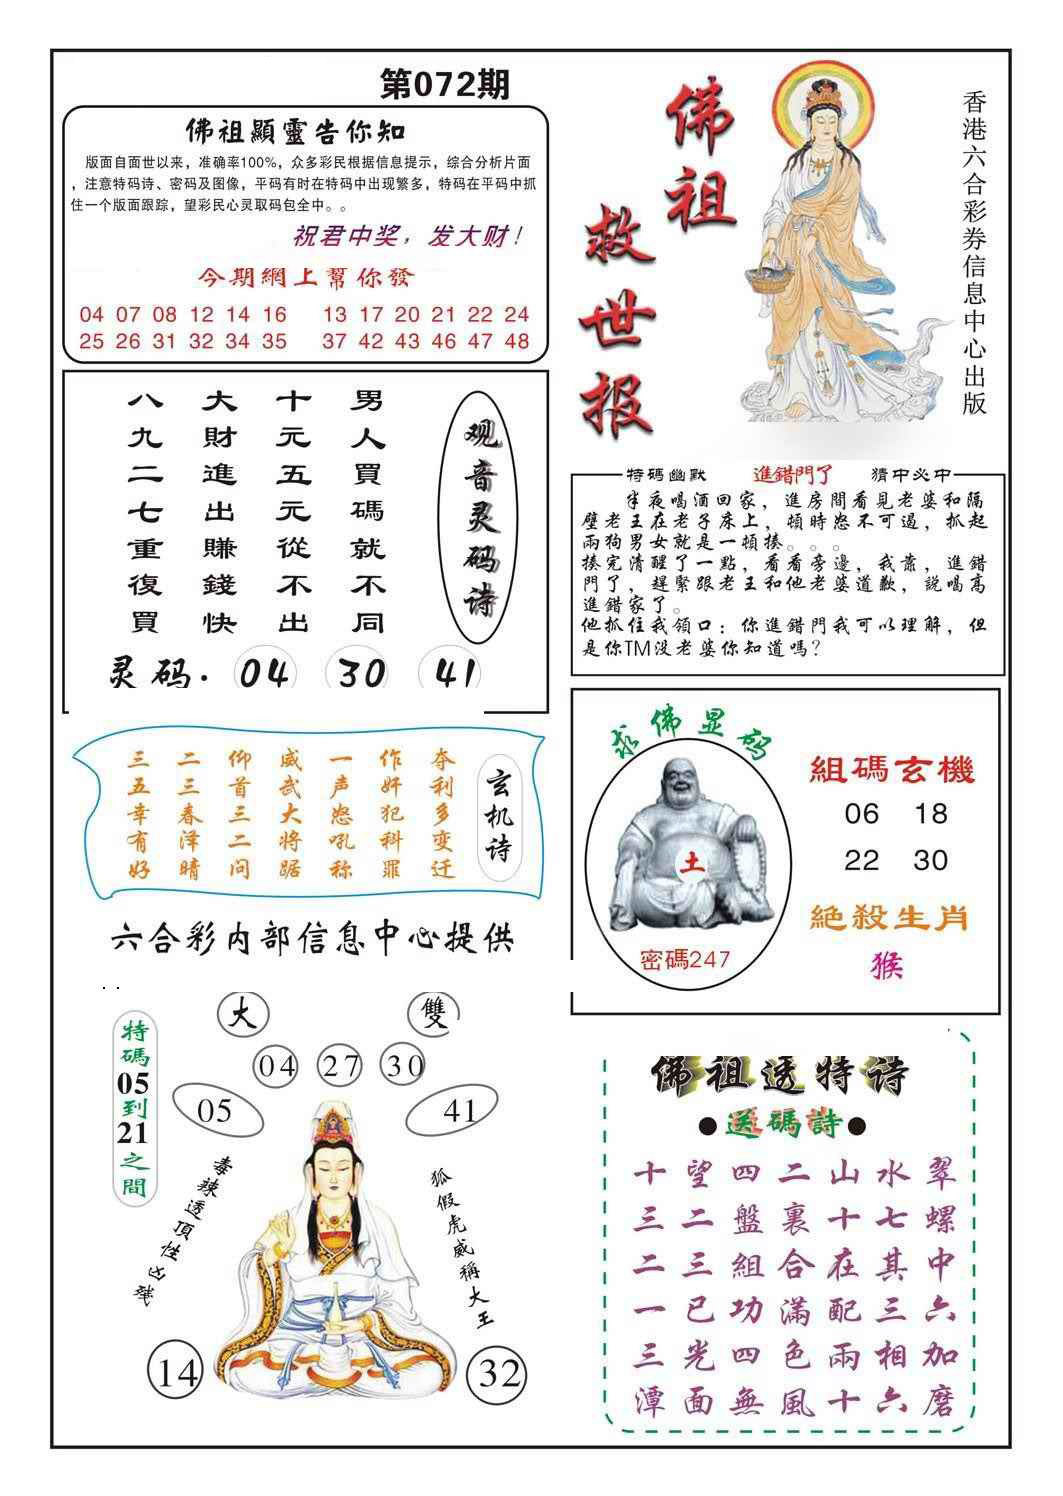 第072期
佛祖顯靈告你知
版面自面世以来，准确率100%，众多彩民根据信息提示，综合分析片面
，注意特码诗、密码及图像，平码有时在特码中出现繁多，特码在平码中抓
住一个版面跟踪，望彩民心灵取码包全中。。
祝君中奖，发大财！
今期網上幫你發
04 07 08 12 14 16 13 17 20 21 22 24
25 26 31 32 34 35 37 42 43 46 47 48
佛祖
救世报
香港六合彩券信息中心出版
观音灵码诗
男人買碼就不同
十元五元從不出
大財進出賺錢快
八九二七重復買
灵码. 04 30 41
特碼幽默 進錯門了 猜中必中
半夜喝酒回家，進房間看見老婆和隔
壁老王在老子床上，頓時怒不可遏，抓起
兩狗男女就是一頓揍。。。
揍完清醒了一點，看看旁邊，我靠，進錯
門了，趕緊跟老王和他老婆道歉，説喝高
進錯家了。
他抓住我領口：你進錯門我可以理解，但
是你TM没老婆你知道嗎？
玄机诗
夺利多变迁
作奸犯科罪
一声怒吼称
威武大将踞
仰首三二问
二三春泽晴
三五幸有好
求佛显码
土
密碼247
組碼玄機
06 18
22 30
絶殺生肖
猴
六合彩内部信息中心提供
特碼05到21之間
大 雙
04 27 30
05 41
毒辣透頂性凶残
狐假虎威稱大王
14 32
佛祖透特诗
●送碼詩●
十望四二山水翠
三二盤裏十七螺
二三組合在其中
一已功滿配三六
三光四色兩相加
潭面無風十六磨